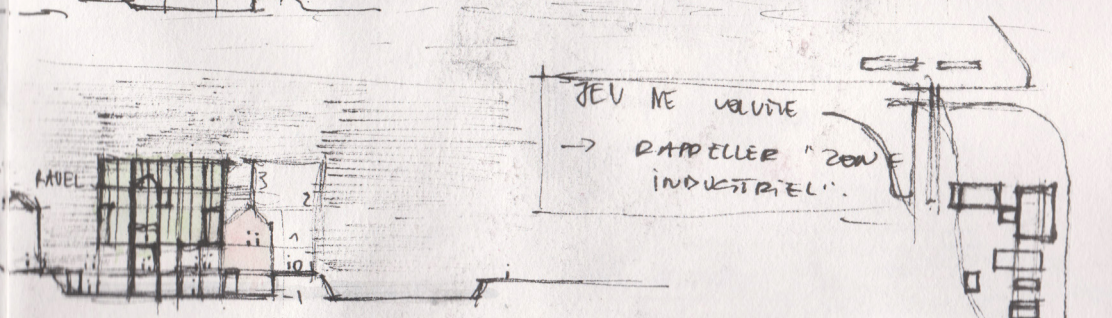 JEU DE VOLUME
→ RAPPELLER "ZONE
INDUSTRIEL".
RAVEL
3
2
1
0
-1